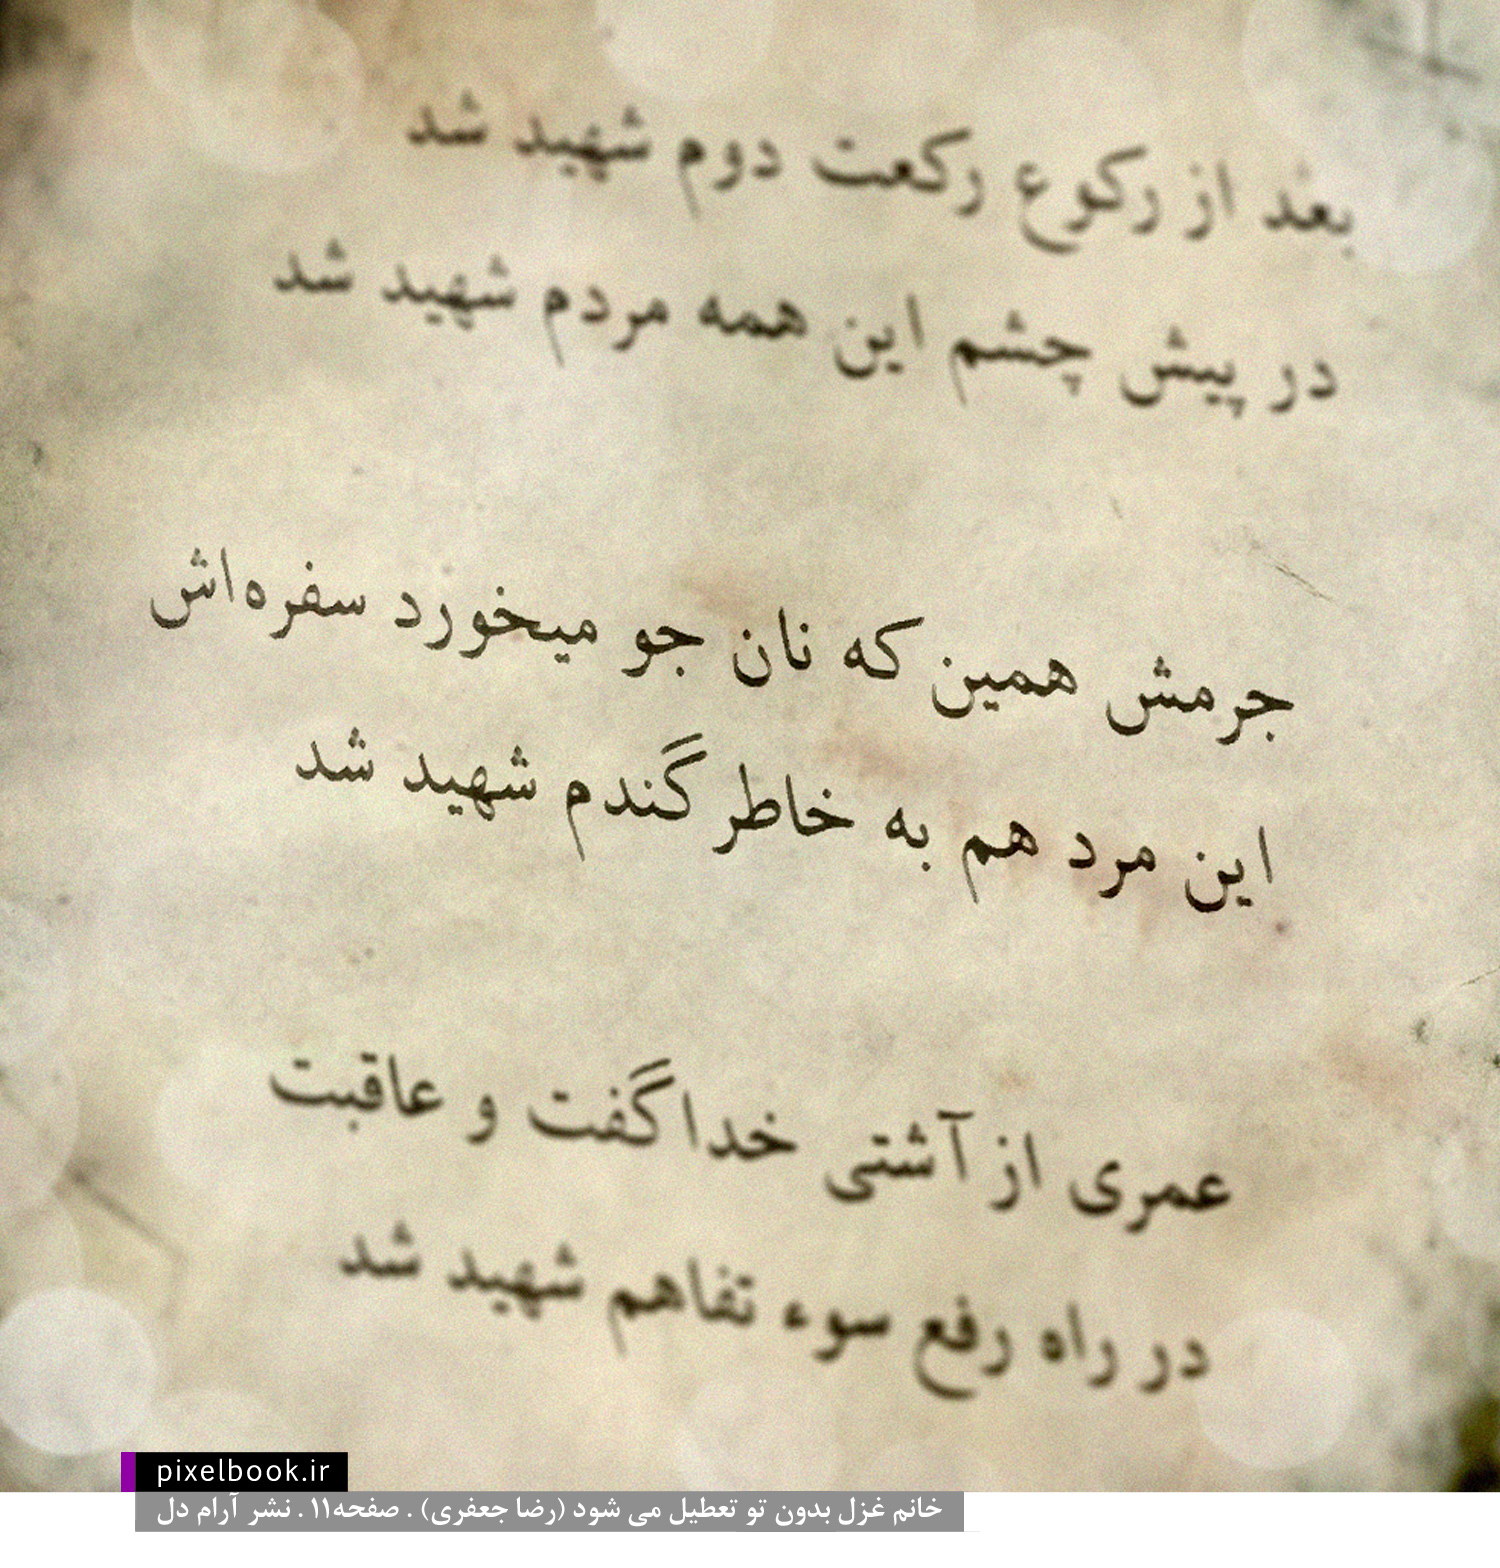 بعد از رکوع رکعت دوم شهید شد
در پیش چشم این همه مردم شهید شد
جرمش همین که نان جو میخورد سفره‌اش
این مرد هم به خاطر گندم شهید شد
عمری از آشتی خدا گفت و عاقبت
در راه رفع سوء تفاهم شهید شد
pixelbook.ir
خانم غزل بدون تو تعطیل می شود (رضا جعفری) . صفحه۱۱ . نشر آرام دل